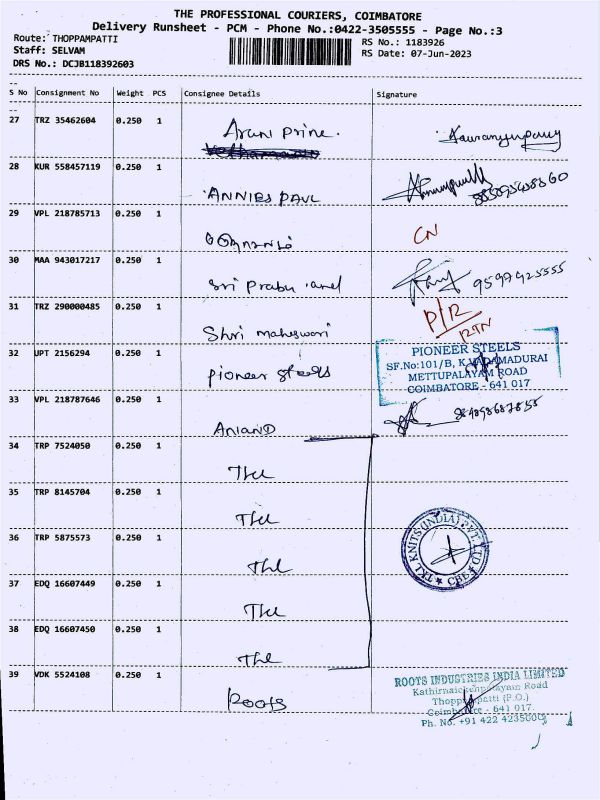 THE PROFESSIONAL COURIERS, COIMBATORE
Delivery Runsheet - PCM - Phone No.:0422-3505555 - Page No.:3
Route: THOPPAMPATTI
RS No.: 1183926
Staff: SELVAM
RS Date: 07-Jun-2023
DRS No.: DCJB118392603
S No Consignment No Weight PCS Consignee Details Signature
27 TRZ 35462604 0.250 1 Arani Prine.
28 KUR 558457119 0.250 1 ANNIES PAUL
29 VPL 218785713 0.250 1 CN
30 MAA 943017217 0.250 1 Sri Prabu and 9597925555
31 TRZ 290000485 0.250 1 Shri maheswari P/R RTN
32 UPT 2156294 0.250 1 pioneer steels
PIONEER STEELS
SF.No:101/B, K.VADAMADURAI
METTUPALAYAM ROAD
COIMBATORE - 641 017
33 VPL 218787646 0.250 1 ANAND
34 TRP 7524050 0.250 1
35 TRP 8145704 0.250 1
36 TRP 5875573 0.250 1
TKL KNITS (INDIA) PVT. LTD CBE
37 EDQ 16607449 0.250 1
38 EDQ 16607450 0.250 1
39 VDK 5524108 0.250 1 Roots
ROOTS INDUSTRIES INDIA LIMITED
Kathirnaickenpalayam Road
Thoppampatti (P.O.)
Coimbatore - 641 017.
Ph. No. +91 422 4235000